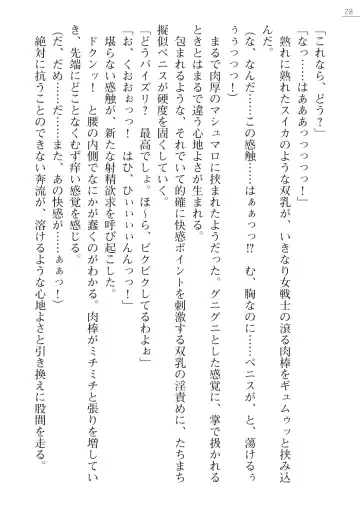 28
「これなら、どう?」
「なっ……はあああっっっっっ!」
熟れに熟れたスイカのような双乳が、いきなり女戦士の滾る肉棒をギュムゥッと挟み込
んだ。
(な、なんだ……この感触……はぁぁっっ!? む、胸なのに……ペニスが、と、蕩けるぅ
ぅぅっっっ!)
まるで肉厚のマシュマロに挟まれたようだった。グニグニとした感覚に、掌で扱かれる
ときとはまるで違う心地よさが生まれる。
包まれるような、それでいて的確に快感ポイントを刺激する双乳の淫責めに、たちまち
擬似ペニスが硬度を固くしていく。
「どうパイズリ? 最高でしょ。ほ〜ら、ビクビクしてるわよぉ」
「お、くおおぉっ! はひ、ひぃぃぃんんっっ!」
堪らない感触が、新たな射精欲求を呼び起こした。
ドクンッ! と腰の内側でなにかが蠢くのがわかる。肉棒がミチミチと張りを増してい
き、先端にどことなくむず痒い感覚を感じる。
(だ、だめ……だ……また、あの快感が……ぁぁっ!)
絶対に抗うことのできない奔流が、溶けるような心地よさと引き換えに股間を走る。